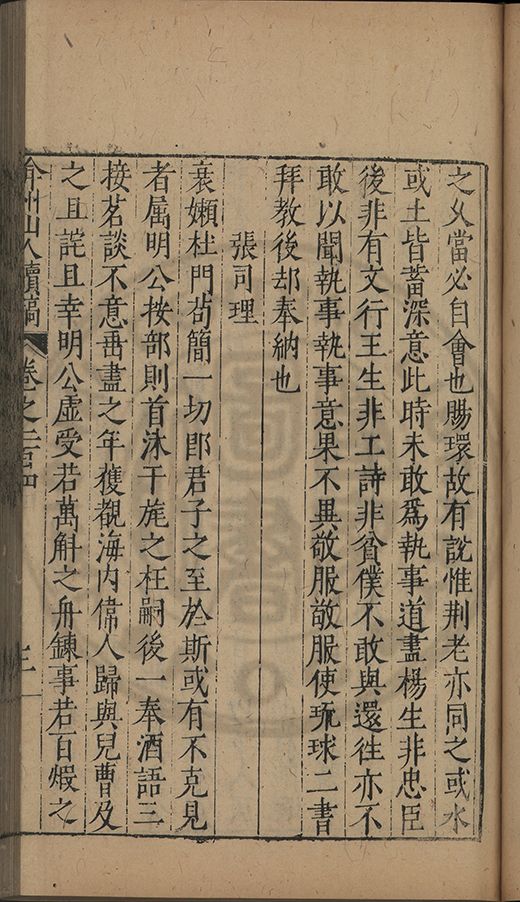 之久當必自會也賜環故有說惟荆老亦同之或水
或土皆蓄深意此時未敢爲執事道盡楊生非忠臣
後非有文行王生非工詩非貧僕不敢與還徃亦不
敢以聞執事執事意果不異敬服敬服使琉球二書
拜教後却奉納也
張司理
衰嬾杜門茍簡一切郎君子之至於斯或有不克見
者屬明公按部則首沐干旄之枉嗣後一奉酒語三
接茗談不意垂盡之年獲覩海内偉人歸與兒曹及
之且詫且幸明公虛受若萬斛之舟鍊事若百煅之
弇州山人續稿 卷之二百四